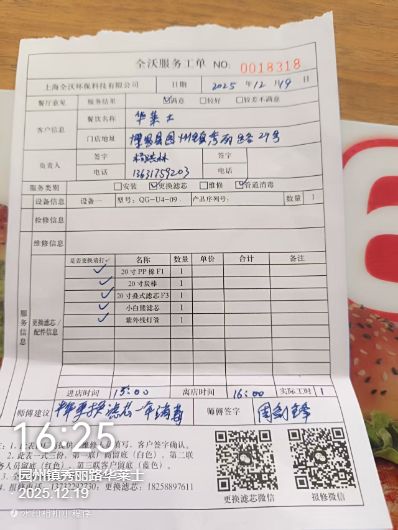 全沃服务工单 NO: 0018318
上海全沃环保科技有限公司 日期 2025 年 12 月 19 日
餐厅意见 服务结果 ☑满意 □较好 □较差不满意
客户信息 餐饮名称 华莱士
门店地址
负责人 签字 签字
电话 13631759203 电话
服务类别 □安装 ☑更换滤芯 □维修 ☑管道消毒
设备信息 设备一 型号: QG-U4-09 产品序列号: 数量 1
检修信息
维修信息
服务信息 更换滤芯/配件信息
是否更换请打✓ 名称 数量 单价 合计 备注
✓ 20寸PP棉F1 1
✓ 20寸炭棒 1
✓ 20寸叠式滤芯F3 1
✓ 小白熊滤芯 1
✓ 紫外线灯管 1
进店时间 15:00 离店时间 16:00 实际工时 1
师傅建议 更换滤芯一年消毒 师傅签字
填写, 客户签字确认。
2. 此表一式三份, 第一联 (白色), 第二联
务人员留底 (红色), 第三联客户留底 (蓝色)。
18258897611
更换滤芯微信 报修微信
16:25
园州镇秀丽路华莱士
2025.12.19